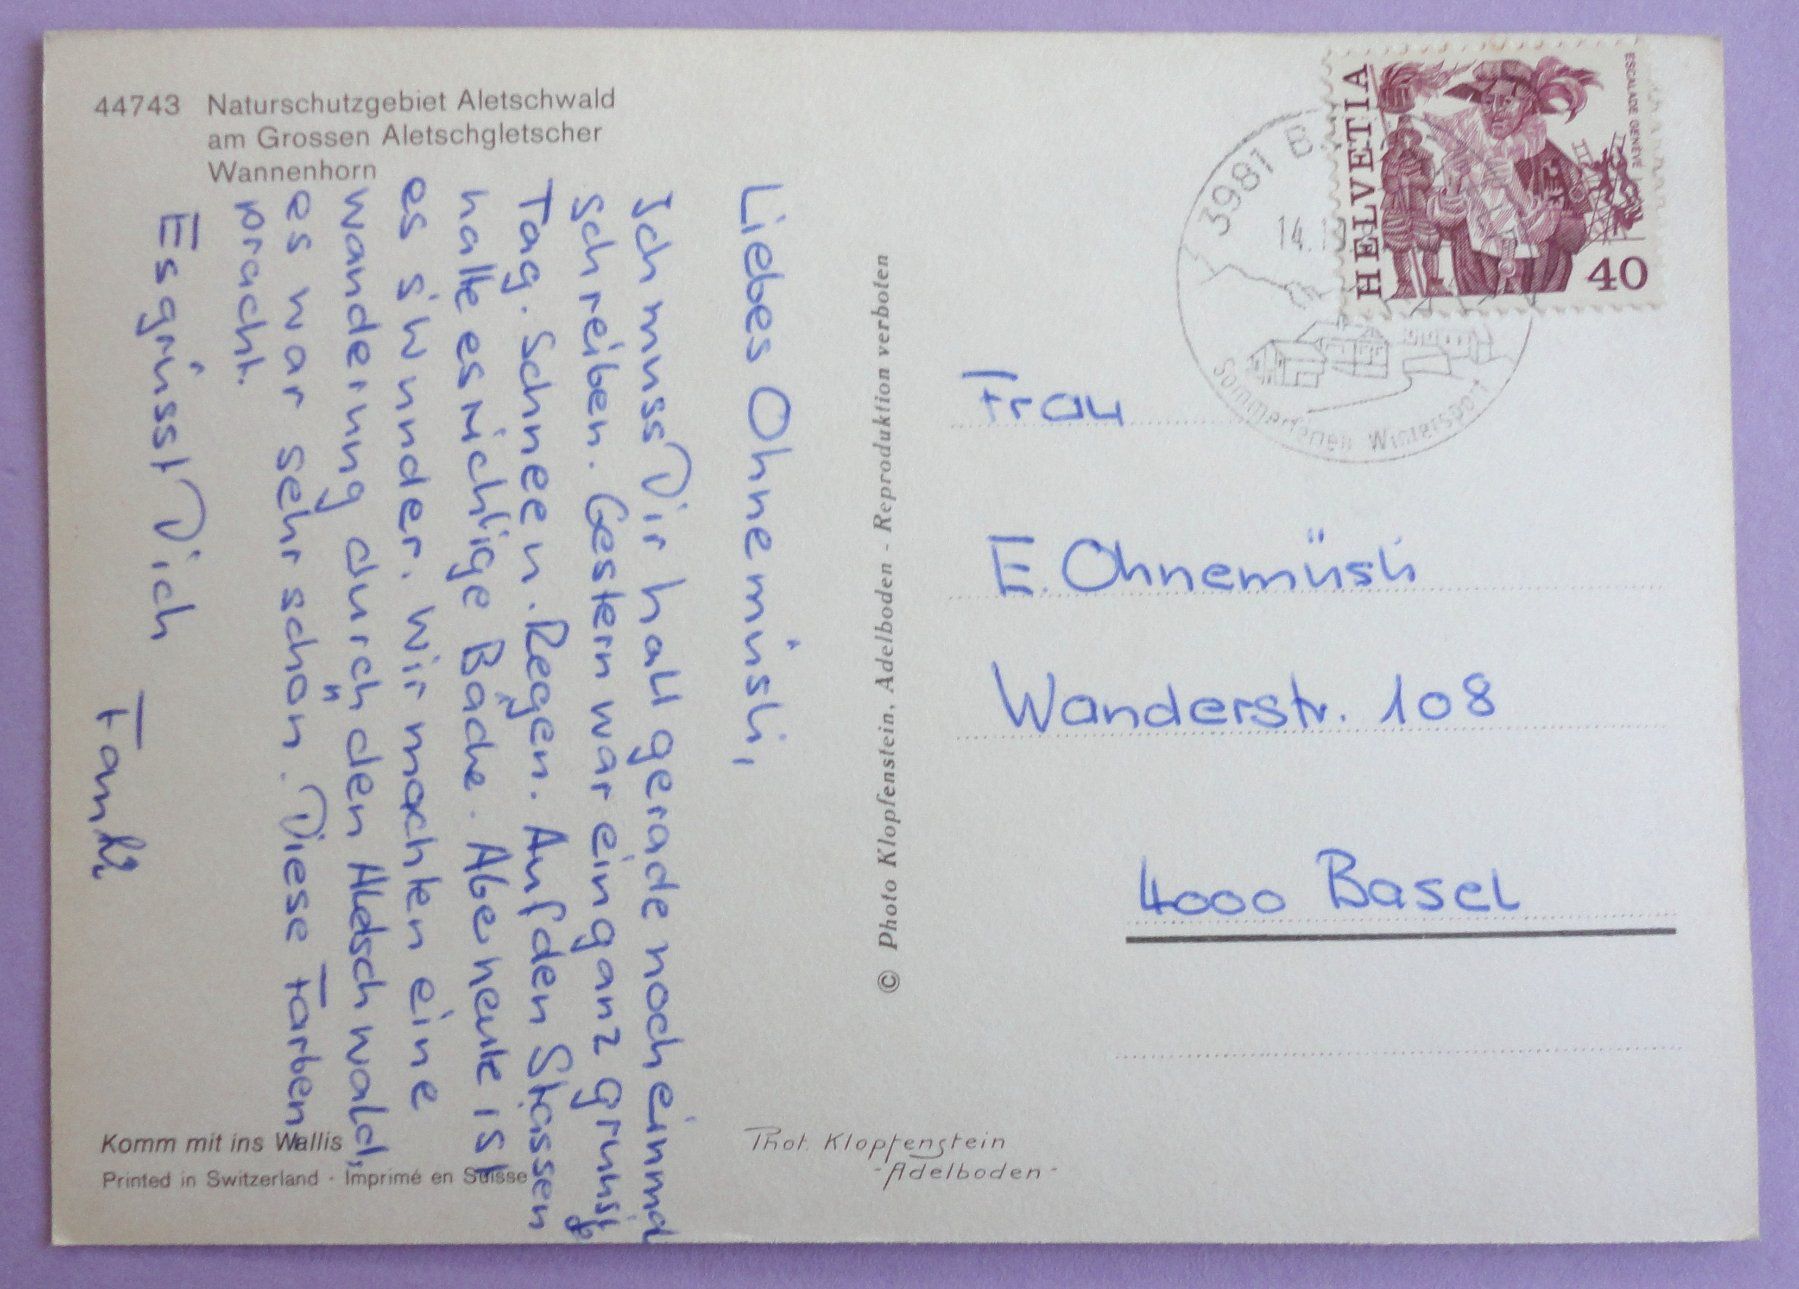 44743 Naturschutzgebiet Aletschwald
am Grossen Aletschgletscher
Wannenhorn
Liebes Ohnemüsli,
Ich muss Dir halt gerade noch einmal
schreiben. Gestern war ein ganz grusig
Tag. Schneen. Regen. Auf den Stassen
hatte es richtige Bäche. Aber heute ist
es s'wunder. Wir machten eine
wanderung durch den Aletschwald,
es war sehr schön. Diese Farben
pracht.
Es grüsst Dich
© Photo Klopfenstein, Adelboden - Reproduktion verboten
HELVETIA
ESCALADE GENÈVE
40
3981 B
14.
Sommerferien Wintersport
Frau
E. Ohnemüsli
Wanderstr. 108
4000 Basel
Komm mit ins Wallis
Printed in Switzerland · Imprimé en Suisse
Phot. Klopfenstein
-Adelboden-